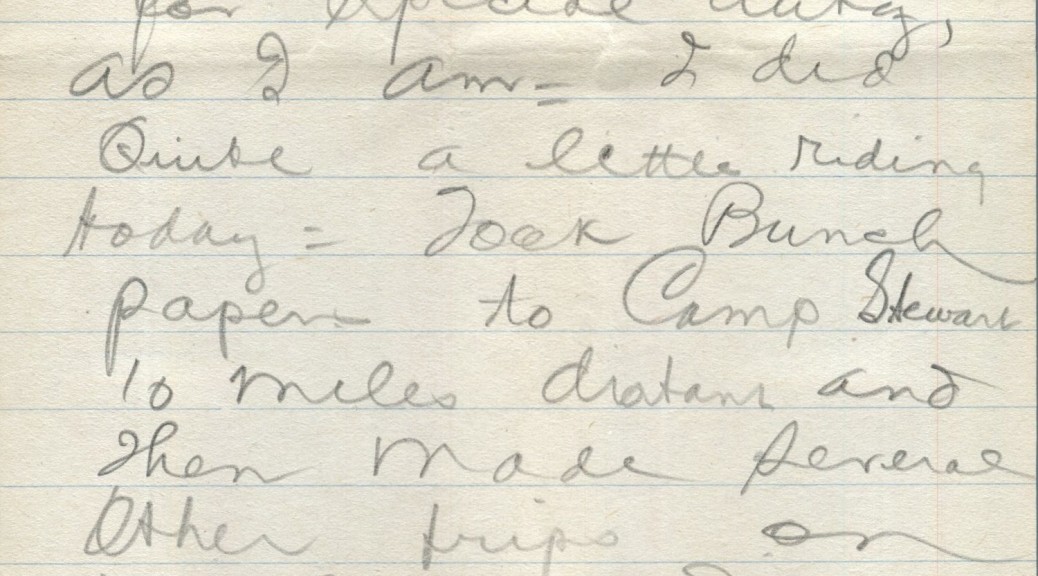 for special duty,
as I am = I did
Quite a little riding
today = Took Bunch
papers to Camp Stewart
10 miles distant and
then made several
Other trips on